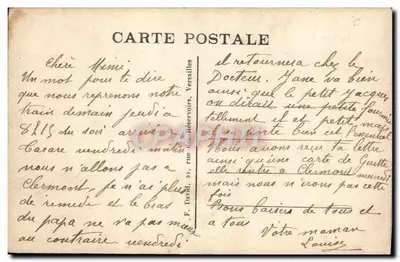 CARTE POSTALE
Chère Mimi
Un mot pour te dire
que nous reprenons notre
train demain jeudi a
8h15 du soir
vendredi matin
nous n'allons pas a
Clermont, je n'ai plus
de remede et le bras
du papa ne va pas mieux
au contraire vendredi
F. David, 21, rue des Réservoirs, Versailles
il retournera chez le
Docteur. Jane va bien
ainsi que le petit Jacques
on dirait une petite
tellement il est petit mais
bien cet
Vous avons reçu ta lettre
ainsi qu'une carte de
elle rentre a Clermont mercredi
mais nous n'irons pas cette
fois
Bons baisers de tous et
a tous
Votre maman
Louise
CPAPHIL